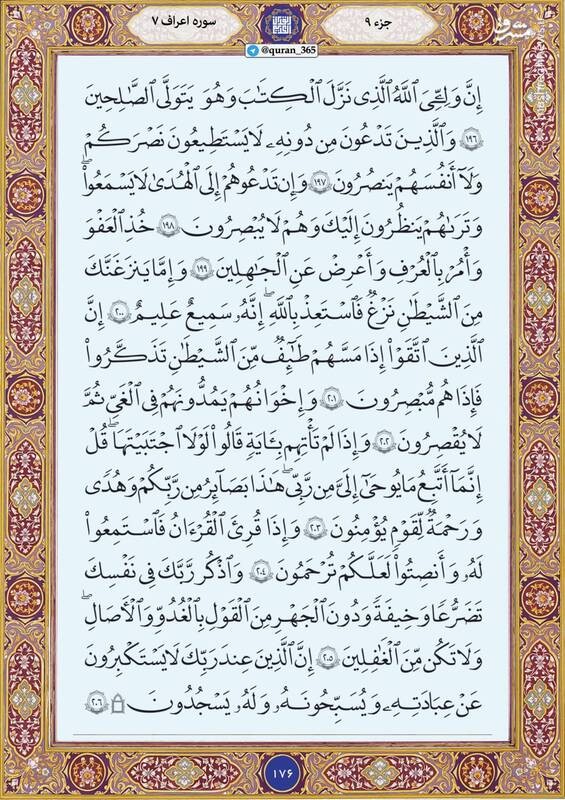 جزء ۹
سوره اعراف ۷
@quran_365
إِنَّ وَلِـِّۧىَ ٱللَّهُ ٱلَّذِى نَزَّلَ ٱلْكِتَٰبَ وَهُوَ يَتَوَلَّى ٱلصَّٰلِحِينَ
۱۹۶ وَٱلَّذِينَ تَدْعُونَ مِن دُونِهِۦ لَا يَسْتَطِيعُونَ نَصْرَكُمْ
وَلَآ أَنفُسَهُمْ يَنصُرُونَ ۱۹۷ وَإِن تَدْعُوهُمْ إِلَى ٱلْهُدَىٰ لَا يَسْمَعُوا۟ۖ
وَتَرَىٰهُمْ يَنظُرُونَ إِلَيْكَ وَهُمْ لَا يُبْصِرُونَ ۱۹۸ خُذِ ٱلْعَفْوَ
وَأْمُرْ بِٱلْعُرْفِ وَأَعْرِضْ عَنِ ٱلْجَٰهِلِينَ ۱۹۹ وَإِمَّا يَنزَغَنَّكَ
مِنَ ٱلشَّيْطَٰنِ نَزْغٌ فَٱسْتَعِذْ بِٱللَّهِۚ إِنَّهُۥ سَمِيعٌ عَلِيمٌ ۲۰۰ إِنَّ
ٱلَّذِينَ ٱتَّقَوْا۟ إِذَا مَسَّهُمْ طَٰٓئِفٌ مِّنَ ٱلشَّيْطَٰنِ تَذَكَّرُوا۟
فَإِذَا هُم مُّبْصِرُونَ ۲۰۱ وَإِخْوَٰنُهُمْ يَمُدُّونَهُمْ فِى ٱلْغَىِّ ثُمَّ
لَا يُقْصِرُونَ ۲۰۲ وَإِذَا لَمْ تَأْتِهِم بِـَٔايَةٍ قَالُوا۟ لَوْلَا ٱجْتَبَيْتَهَاۚ قُلْ
إِنَّمَآ أَتَّبِعُ مَا يُوحَىٰٓ إِلَىَّ مِن رَّبِّىۚ هَٰذَا بَصَآئِرُ مِن رَّبِّكُمْ وَهُدًى
وَرَحْمَةٌ لِّقَوْمٍ يُؤْمِنُونَ ۲۰۳ وَإِذَا قُرِئَ ٱلْقُرْءَانُ فَٱسْتَمِعُوا۟
لَهُۥ وَأَنصِتُوا۟ لَعَلَّكُمْ تُرْحَمُونَ ۲۰۴ وَٱذْكُر رَّبَّكَ فِى نَفْسِكَ
تَضَرُّعًا وَخِيفَةً وَدُونَ ٱلْجَهْرِ مِنَ ٱلْقَوْلِ بِٱلْغُدُوِّ وَٱلْءَاصَالِ
وَلَا تَكُن مِّنَ ٱلْغَٰفِلِينَ ۲۰۵ إِنَّ ٱلَّذِينَ عِندَ رَبِّكَ لَا يَسْتَكْبِرُونَ
عَنْ عِبَادَتِهِۦ وَيُسَبِّحُونَهُۥ وَلَهُۥ يَسْجُدُونَ ۩ ۲۰۶
۱۷۶